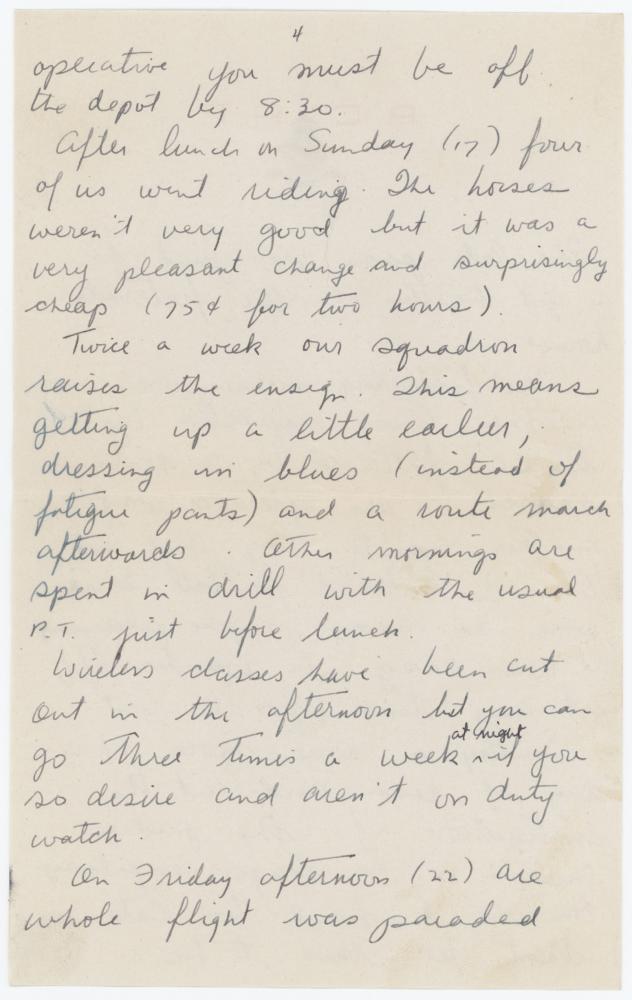 4
operative you must be off
the depot by 8:30.
After lunch on Sunday (17) four
of us went riding. The horses
weren't very good but it was a
very pleasant change and surprisingly
cheap (75¢ for two hours).
Twice a week our squadron
raises the ensign. This means
getting up a little earlier,
dressing in blues (instead of
fatigue pants) and a route march
afterwards. Other mornings are
spent in drill with the usual
P.T. just before lunch.
Wireless classes have been cut
out in the afternoon but you can
at night
go three times a week if you
so desire and aren't on duty
watch.
On Friday afternoon (22) are
whole flight was paraded